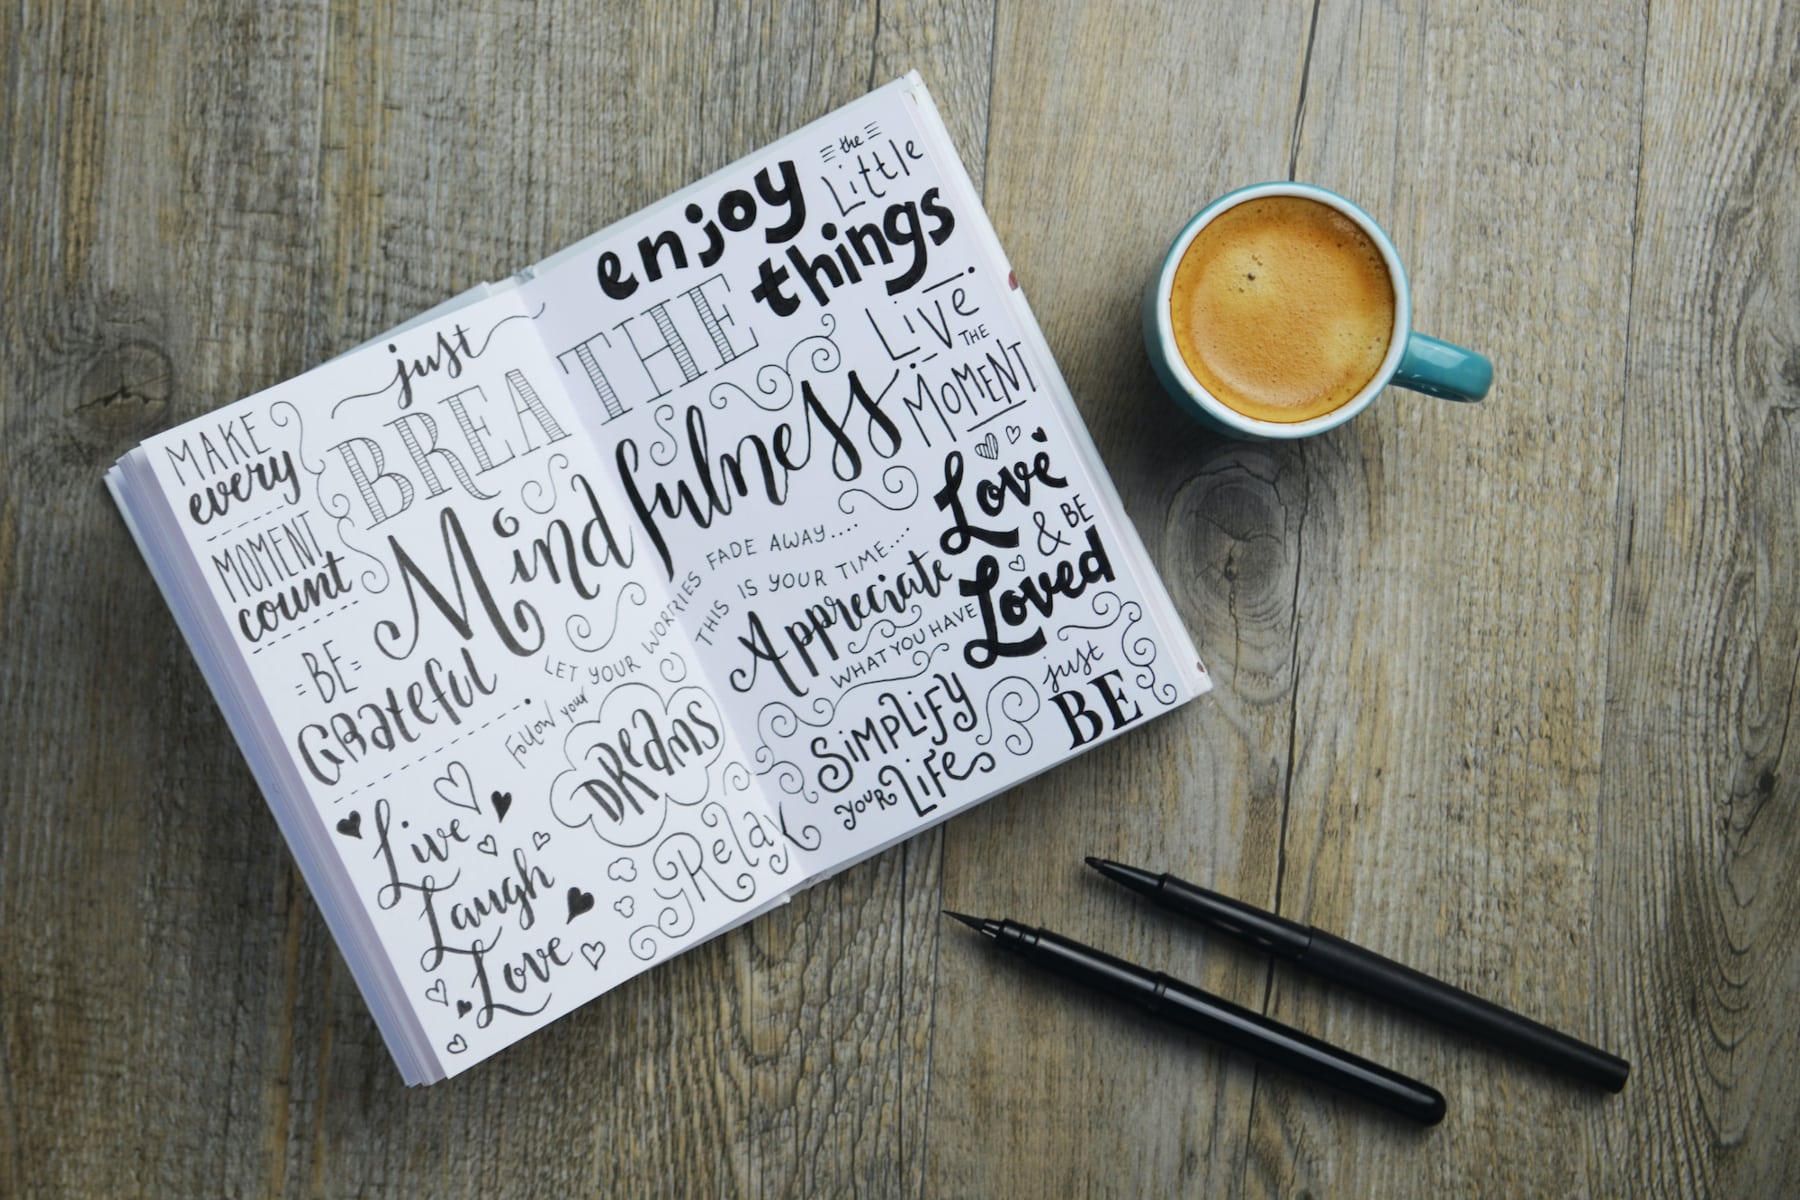 just
BREATHE
Mindfulness
MAKE
every
MOMENT
count
BE
Grateful
Live
Laugh
Love
LET YOUR WORRIES FADE AWAY....
THIS IS YOUR TIME....
Follow your
DREAMS
Relax
enjoy
the
Little
things
LiVe
THE
MOMENT
Love
& BE
Loved
Appreciate
WHAT YOU HAVE
SiMPLiFY
YOUR LiFe
just
BE